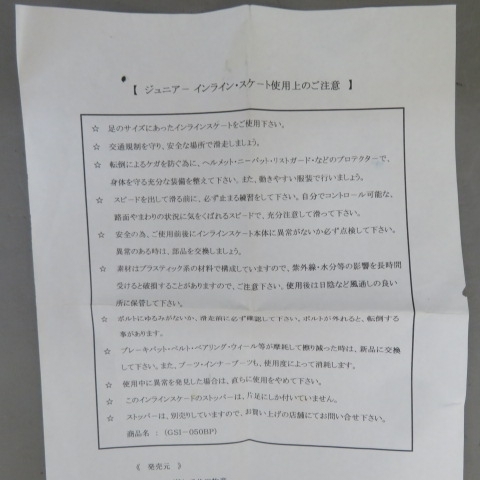 【 ジュニアー インライン・スケート使用上のご注意 】
☆ 足のサイズにあったインラインスケートをご使用下さい。
☆ 交通規制を守り、安全な場所で滑走しましょう。
☆ 転倒によるケガを防ぐ為に、ヘルメット・ニーパット・リストガード・などのプロテクターで、
身体を守る充分な装備を整えて下さい。また、動きやすい服装で行いましょう。
☆ スピードを出して滑る前に、必ず止まる練習をして下さい。自分でコントロール可能な、
路面やまわりの状況に気をくばれるスピードで、充分注意して滑って下さい。
☆ 安全の為、ご使用前後にインラインスケート本体に異常がないか必ず点検して下さい。
異常のある時は、部品を交換しましょう。
☆ 素材はプラスティック系の材料で構成していますので、紫外線・水分等の影響を長時間
受けると破損することがありますので、ご注意下さい。使用後は日陰など風通しの良い
所に保管して下さい。
☆ ボルトにゆるみがないか、滑走前に必ず確認して下さい。ボルトが外れると、転倒する
事があります。
☆ ブレーキパット・ベルト・ベアリング・ウィール等が摩耗して擦り減った時は、新品に交換
して下さい。また、ブーツ・インナーブーツも、使用度によって消耗します。
☆ 使用中に異常を発見した場合は、直ちに使用をやめて下さい。
☆ このインラインスケートのストッパーは、片足にしか付いていません。
☆ ストッパーは、別売りしていますので、お買い上げの店舗にてお問い合せ下さい。
商品名 : (GSI-050BP)
《 発売元 》